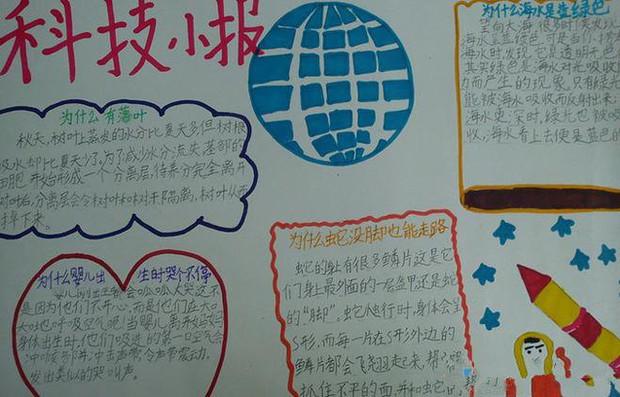 科技小报
为什么有落叶
秋天,树叶上蒸发的水分比夏天多,但树根
吸水却比夏天少。为了减少水分流失,基部的
细胞开始形成一个分离层,待养分完全离开
树叶后,分离层会令树叶和树干隔离,树叶从而
掉下来。
为什么婴儿出生时哭个不停
婴儿刚出生都会呱呱大哭,这不
是因为他们不开心,而是他们在大口
大口呼吸空气呢!当婴儿离开妈妈
身体出生时,他们吸进的第一口空气会
冲到喉部,冲击声带,令声带震动,
发出类似的哭叫声。
为什么海水是蓝绿色
望向大海,很
海水呈蓝绿色
海水时发现,它是透明无色
其实绿色是海水对光吸收
力而产生的现象,只有绿光
能被海水吸收而反射出来;
海水更深时,绿光也被吸
收,海水看上去便是蓝色的
为什么蛇没脚也能走路
蛇的身上有很多鳞片,这是它
们身上最外面的一层盔甲,还是蛇
的“脚”。蛇爬行时,身体会呈
S形,而每一片在S形外边的
鳞片都会飞翘起来,帮
抓住不平的面,并和蛇